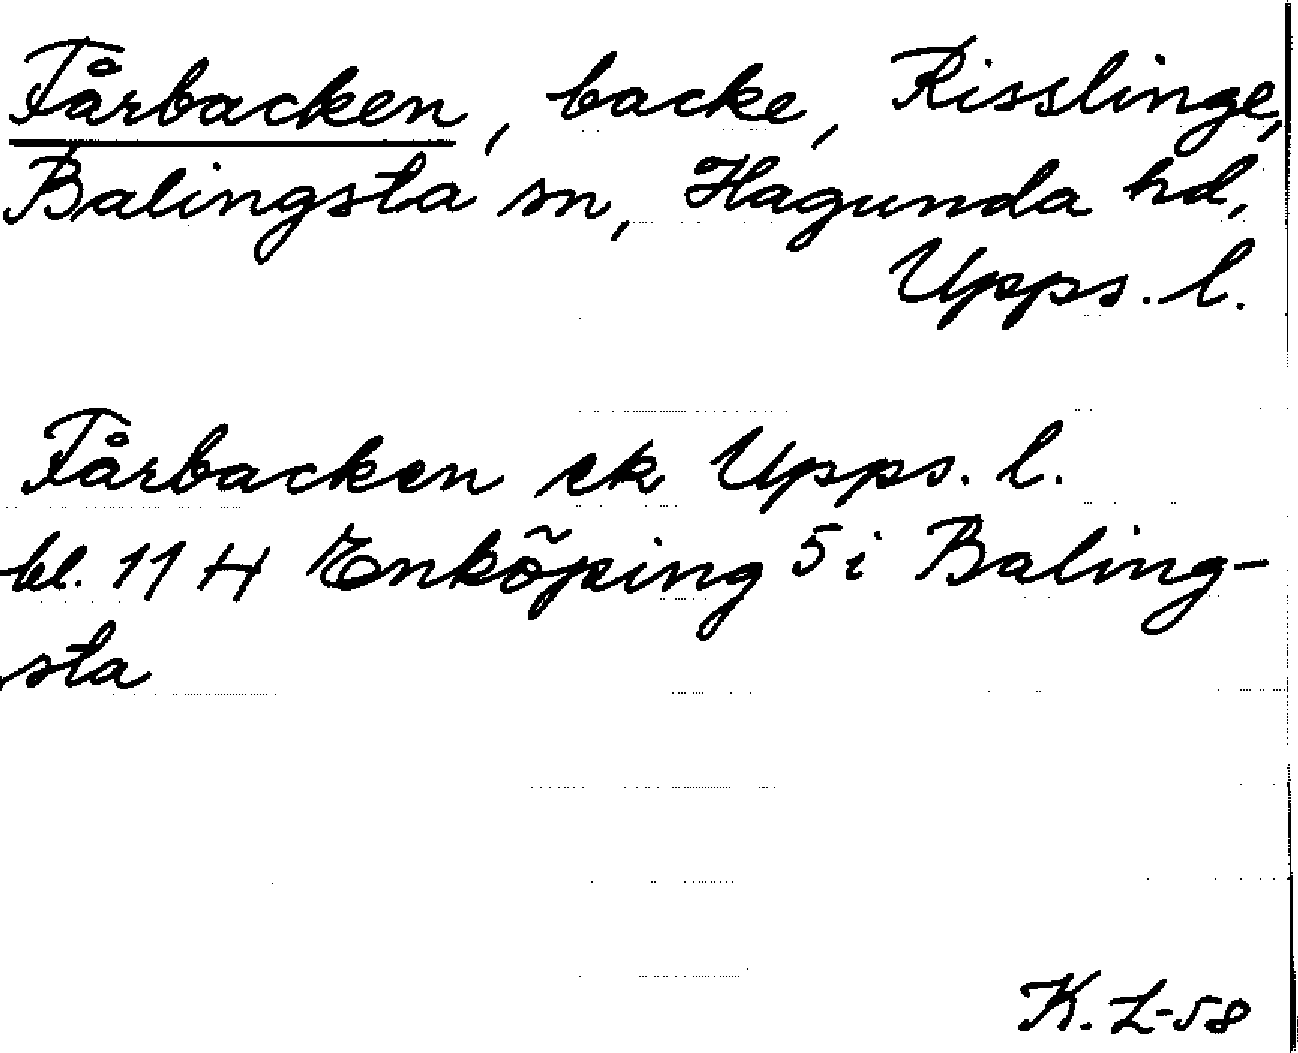 Fårbacken, backe, Risslinge,
Balingsta sn, Hagunda hd,
Upps. l.
Fårbacken ek Upps. l.
bl. 114 Enköping 5i Baling-
sta
K. L-58